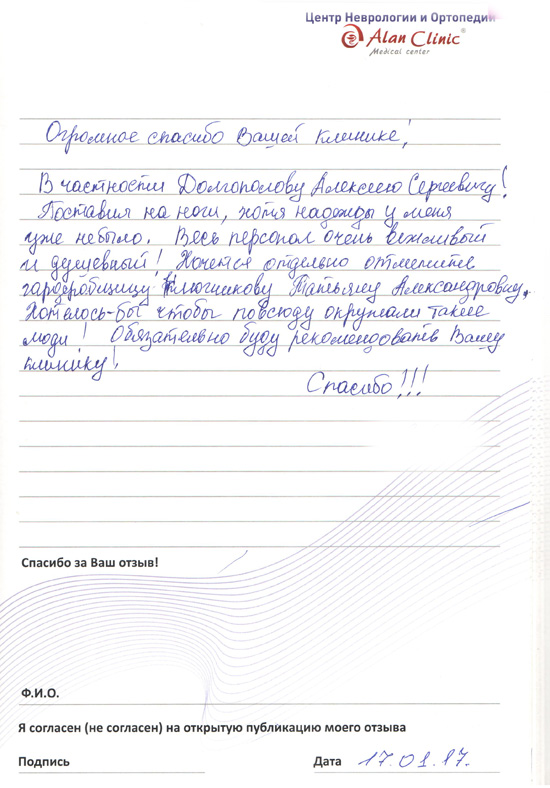 Центр Неврологии и Ортопедии
Alan Clinic®
Medical center
Огромное спасибо Вашей клинике!
В частности Долгополову Алексею Сергеевичу!
Поставил на ноги, хотя надежды у меня
уже небыло. Весь персонал очень вежливый
и душевный! Хочется отдельно отметить
гардеробщицу Ключникову Татьяну Александровну.
Хотелось-бы чтобы повсюду окружали такие
люди! Обязательно буду рекомендовать Вашу
клинику!
Спасибо!!!
Спасибо за Ваш отзыв!
Ф.И.О.
Я согласен (не согласен) на открытую публикацию моего отзыва
Подпись Дата 17.01.17.